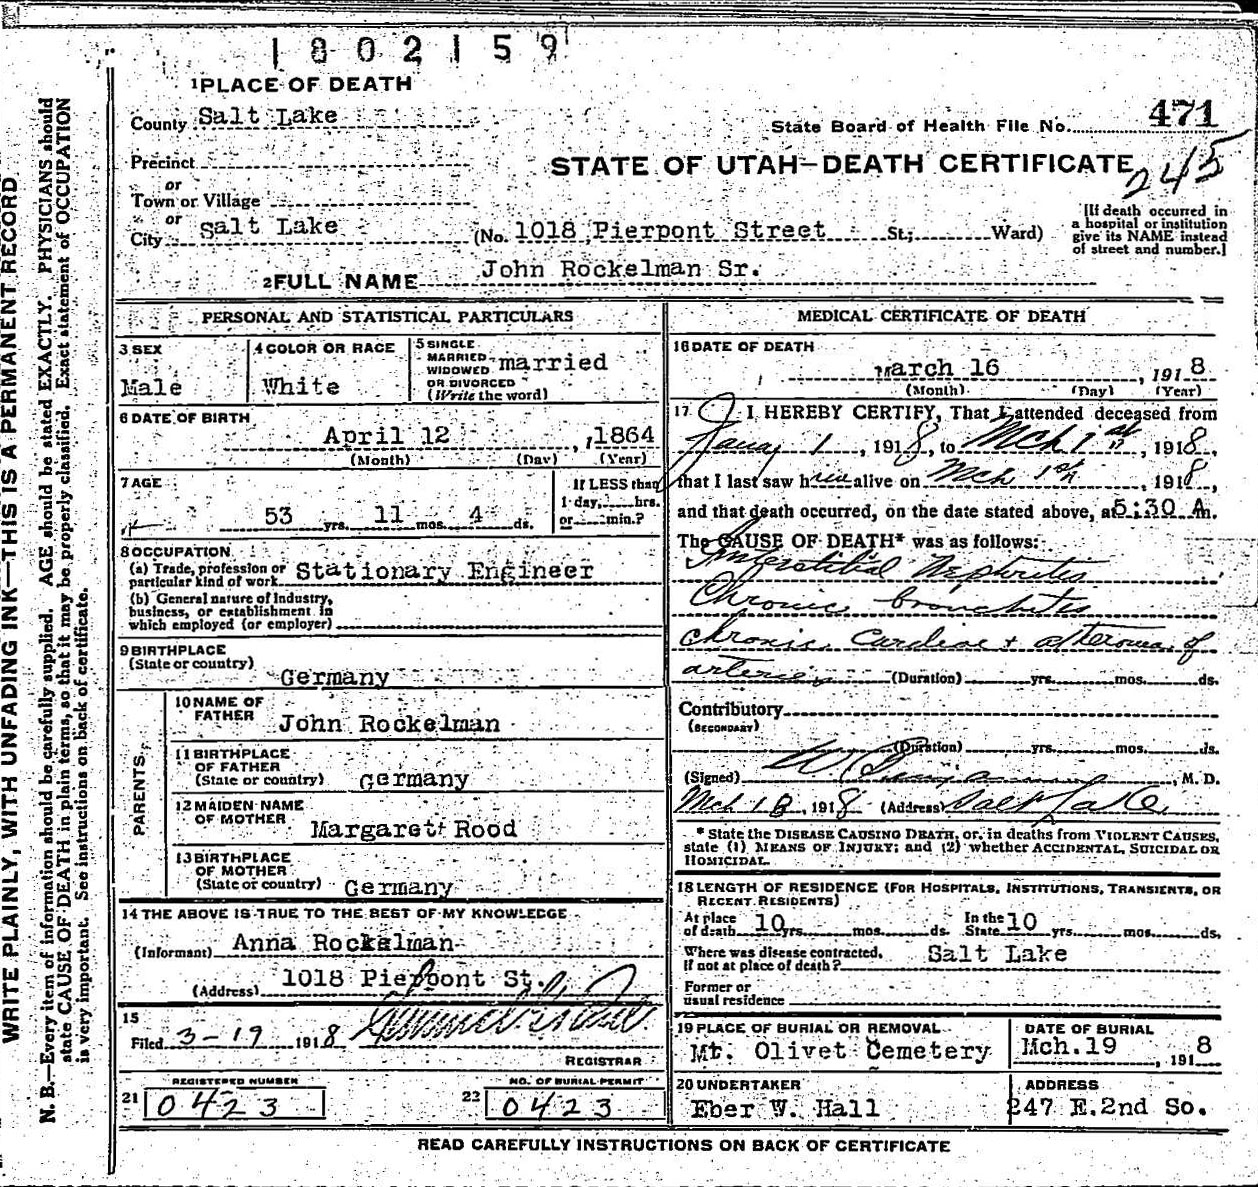 1802159
1 PLACE OF DEATH
County Salt Lake
State Board of Health File No. 471
Precinct
STATE OF UTAH—DEATH CERTIFICATE
245
or
Town or Village
or
City Salt Lake (No. 1018 Pierpont Street St.; Ward)
[If death occurred in
a hospital or institution
give its NAME instead
of street and number.]
2 FULL NAME John Rockelman Sr.
PERSONAL AND STATISTICAL PARTICULARS
3 SEX
Male
4 COLOR OR RACE
White
5 SINGLE
MARRIED
WIDOWED
OR DIVORCED
(Write the word)
married
6 DATE OF BIRTH
April 12, 1864
(Month) (Day) (Year)
7 AGE
53 yrs. 11 mos. 4 ds.
If LESS than
1 day, hrs.
or min.?
8 OCCUPATION
(a) Trade, profession or
particular kind of work Stationary Engineer
(b) General nature of industry,
business, or establishment in
which employed (or employer)
9 BIRTHPLACE
(State or country)
Germany
PARENTS
10 NAME OF
FATHER John Rockelman
11 BIRTHPLACE
OF FATHER
(State or country) Germany
12 MAIDEN NAME
OF MOTHER Margaret Rood
13 BIRTHPLACE
OF MOTHER
(State or country) Germany
14 THE ABOVE IS TRUE TO THE BEST OF MY KNOWLEDGE
(Informant) Anna Rockelman
(Address) 1018 Pierpont St.
15
Filed 3-19 1918
REGISTRAR
21 REGISTERED NUMBER
0423
22 NO. OF BURIAL PERMIT
0423
MEDICAL CERTIFICATE OF DEATH
16 DATE OF DEATH
March 16, 1918
(Month) (Day) (Year)
17 I HEREBY CERTIFY, That I attended deceased from
1, 1918, to Mch 1st, 1918,
that I last saw him alive on Mch 1st, 1918,
and that death occurred, on the date stated above, at 5:30 A.m.
The CAUSE OF DEATH* was as follows:
Interstitial Nephrites
Chronic bronchites
chronic Cardiac + atheroma of
arteries (Duration) yrs. mos. ds.
Contributory
(SECONDARY)
(Duration) yrs. mos. ds.
(Signed) M. D.
Mch 18, 1918 (Address) Salt Lake
* State the DISEASE CAUSING DEATH, or, in deaths from VIOLENT CAUSES,
state (1) MEANS OF INJURY; and (2) whether ACCIDENTAL, SUICIDAL OR
HOMICIDAL.
18 LENGTH OF RESIDENCE (FOR HOSPITALS, INSTITUTIONS, TRANSIENTS, OR
RECENT RESIDENTS)
At place
of death 10 yrs. mos. ds. In the
State 10 yrs. mos. ds.
Where was disease contracted,
if not at place of death? Salt Lake
Former or
usual residence
19 PLACE OF BURIAL OR REMOVAL
Mt. Olivet Cemetery
DATE OF BURIAL
Mch. 19, 1918
20 UNDERTAKER
Eber W. Hall
ADDRESS
247 E. 2nd So.
READ CAREFULLY INSTRUCTIONS ON BACK OF CERTIFICATE
WRITE PLAINLY, WITH UNFADING INK—THIS IS A PERMANENT RECORD
N. B.—Every item of information should be carefully supplied. AGE should be stated EXACTLY. PHYSICIANS should
state CAUSE OF DEATH in plain terms, so that it may be properly classified. Exact statement of OCCUPATION
is very important. See instructions on back of certificate.